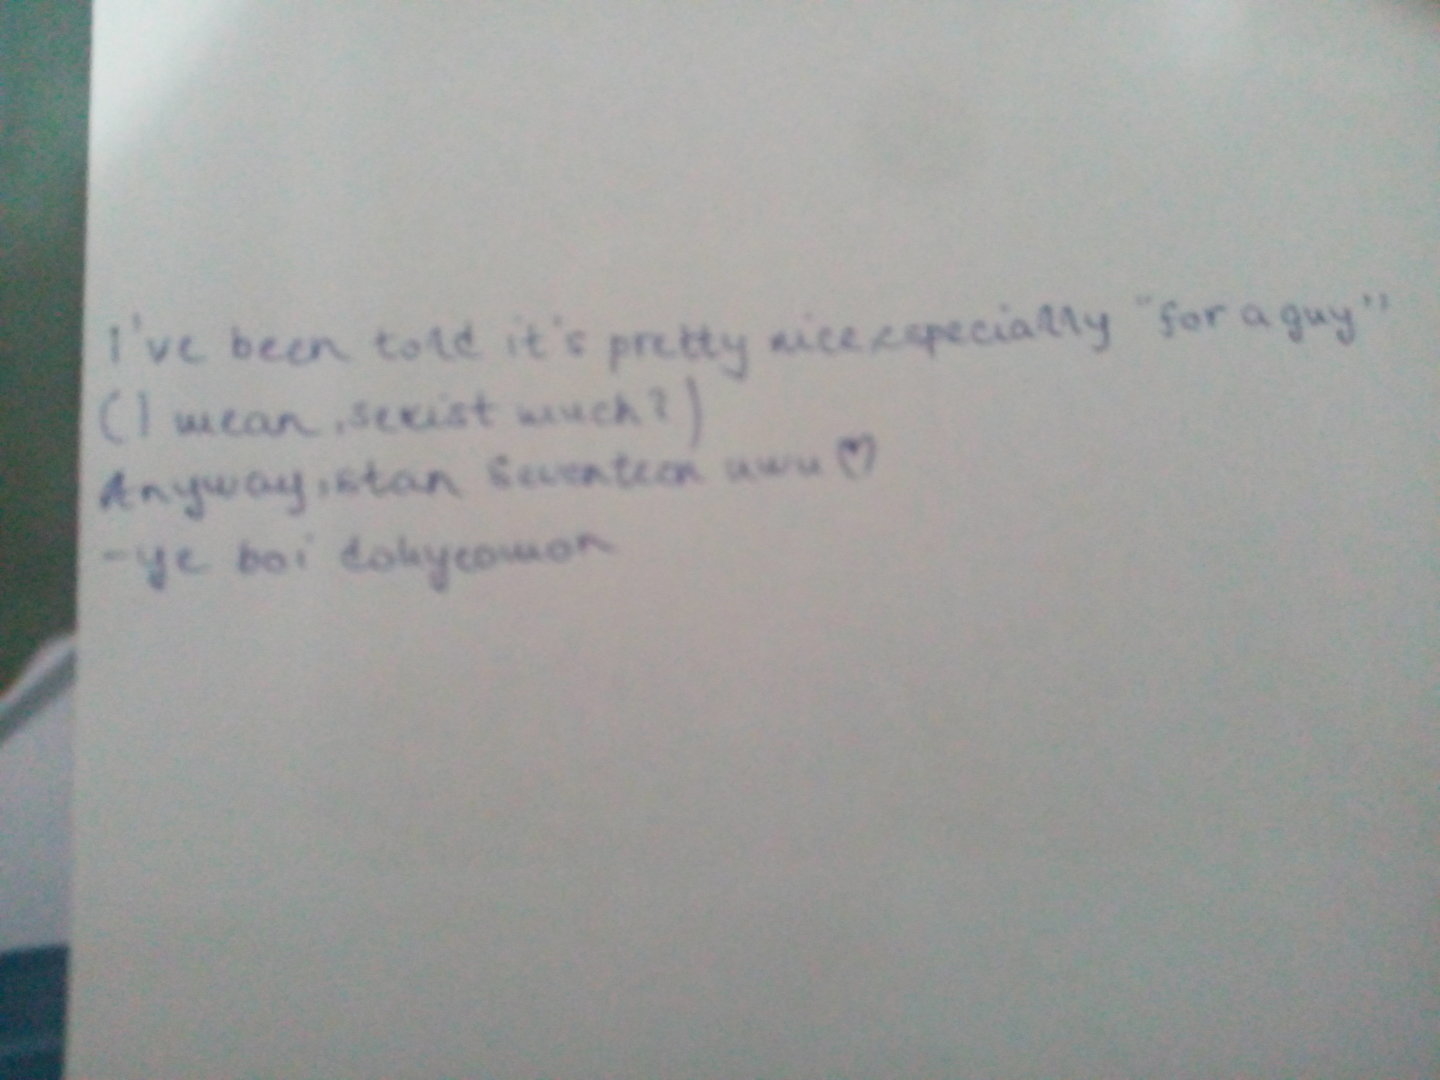 I've been told it's pretty nice, especially "for a guy"
(I mean, sexist much?)
Anyway, stan Seventeen uwu ♡
-ye boi